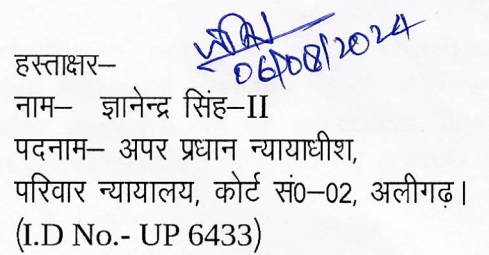 06/08/2024
हस्ताक्षर–
नाम– ज्ञानेन्द्र सिंह–II
पदनाम– अपर प्रधान न्यायाधीश,
परिवार न्यायालय, कोर्ट सं0–02, अलीगढ़।
(I.D No.- UP 6433)